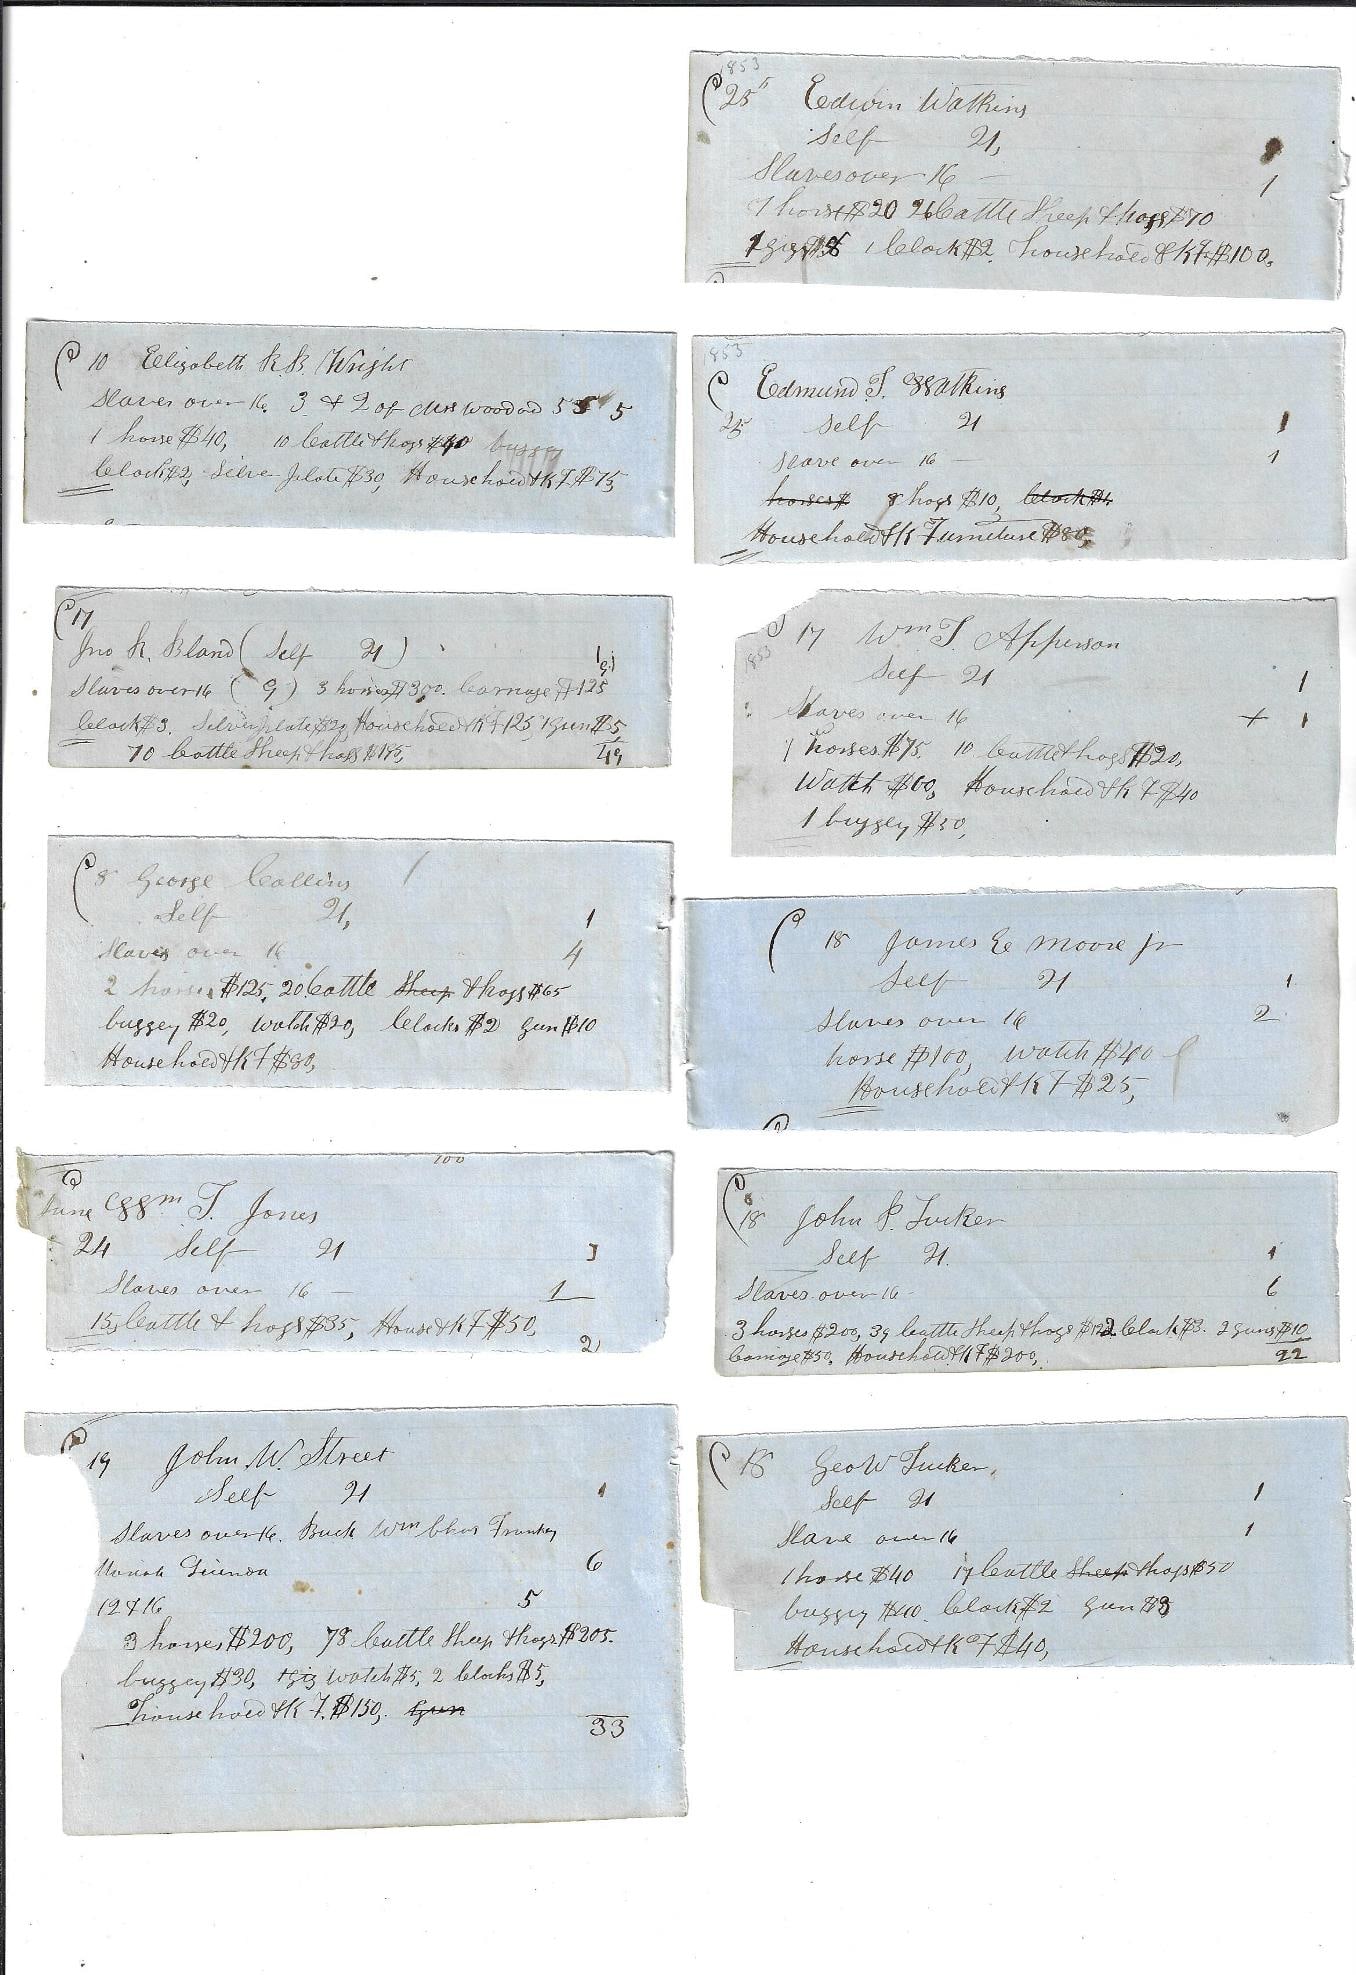 10 Elizabeth R. B. Wright
Slaves over 16, 3 & 2 of Mrs Woodad 5 5 5
1 horse $40, 10 Cattle & hogs $40 buggy
Clock $2, Silver plate $30, Household & K F $75,
17
Jno R. Bland ( Self 21 ) 1
Slaves over 16 ( 9 ) 3 horses $300. Carriage $125 9
Clock $3. Silver plate $20 Household & K F 125, 1 Gun $5,
70 Cattle Sheep & hogs $195, 49
8 George Collins 1
Self 21, 1
Slaves over 16 4
2 horses $125, 20 Cattle Sheep & hogs $65
buggey $20, watch $20, Clocks $2 gun $10
Household & K F $80,
100
June Wm T. Jones
24 Self 21 1
Slaves over 16 — 1
15 Cattle & hogs $35, House & K F $50,
2
19 John W. Street
Self 21 1
Slaves over 16. Buck Wm Chas
6
12 & 16 5
3 horses $200, 78 Cattle Sheep & hogs $205.
buggey $30, 1 gig watch $5, 2 Clocks $5,
household & K F. $150, Gun
33
1853
25 Edwin Watkins
Self 21,
Slaves over 16 — 1
1 horse $20 26 Cattle Sheep & hogs $70
1 gig 1 Clock $2. household & K F $100,
1853
Edmund T. Watkins
25 Self 21 1
Slave over 16 — 1
horses $ 8 hogs $10, Clock $4
Household & K Furniture $80,
1853
17 Wm T. Apperson
Self 21 1
Slaves over 16 + 1
1 horses $75. 10 Cattle & hogs $20,
Watch $60, Household & K F $40
1 buggey $30,
18 James E Moore Jr
Self 21 1
Slaves over 16 2
horse $100, watch $40
Household & K F $25,
18 John P. Tucker
Self 21. 1
Slaves over 16 - 6
3 horses $200, 39 Cattle Sheep & hogs $122 Clock $3. 2 guns $10
Carriage $50. Household & K F $200, 22
18 Geo W Tucker,
Self 21 1
Slave over 16 1
1 horse $40 17 Cattle Sheep & hogs $50
buggey $40. Clock $2 gun $3
Household & K F $40,